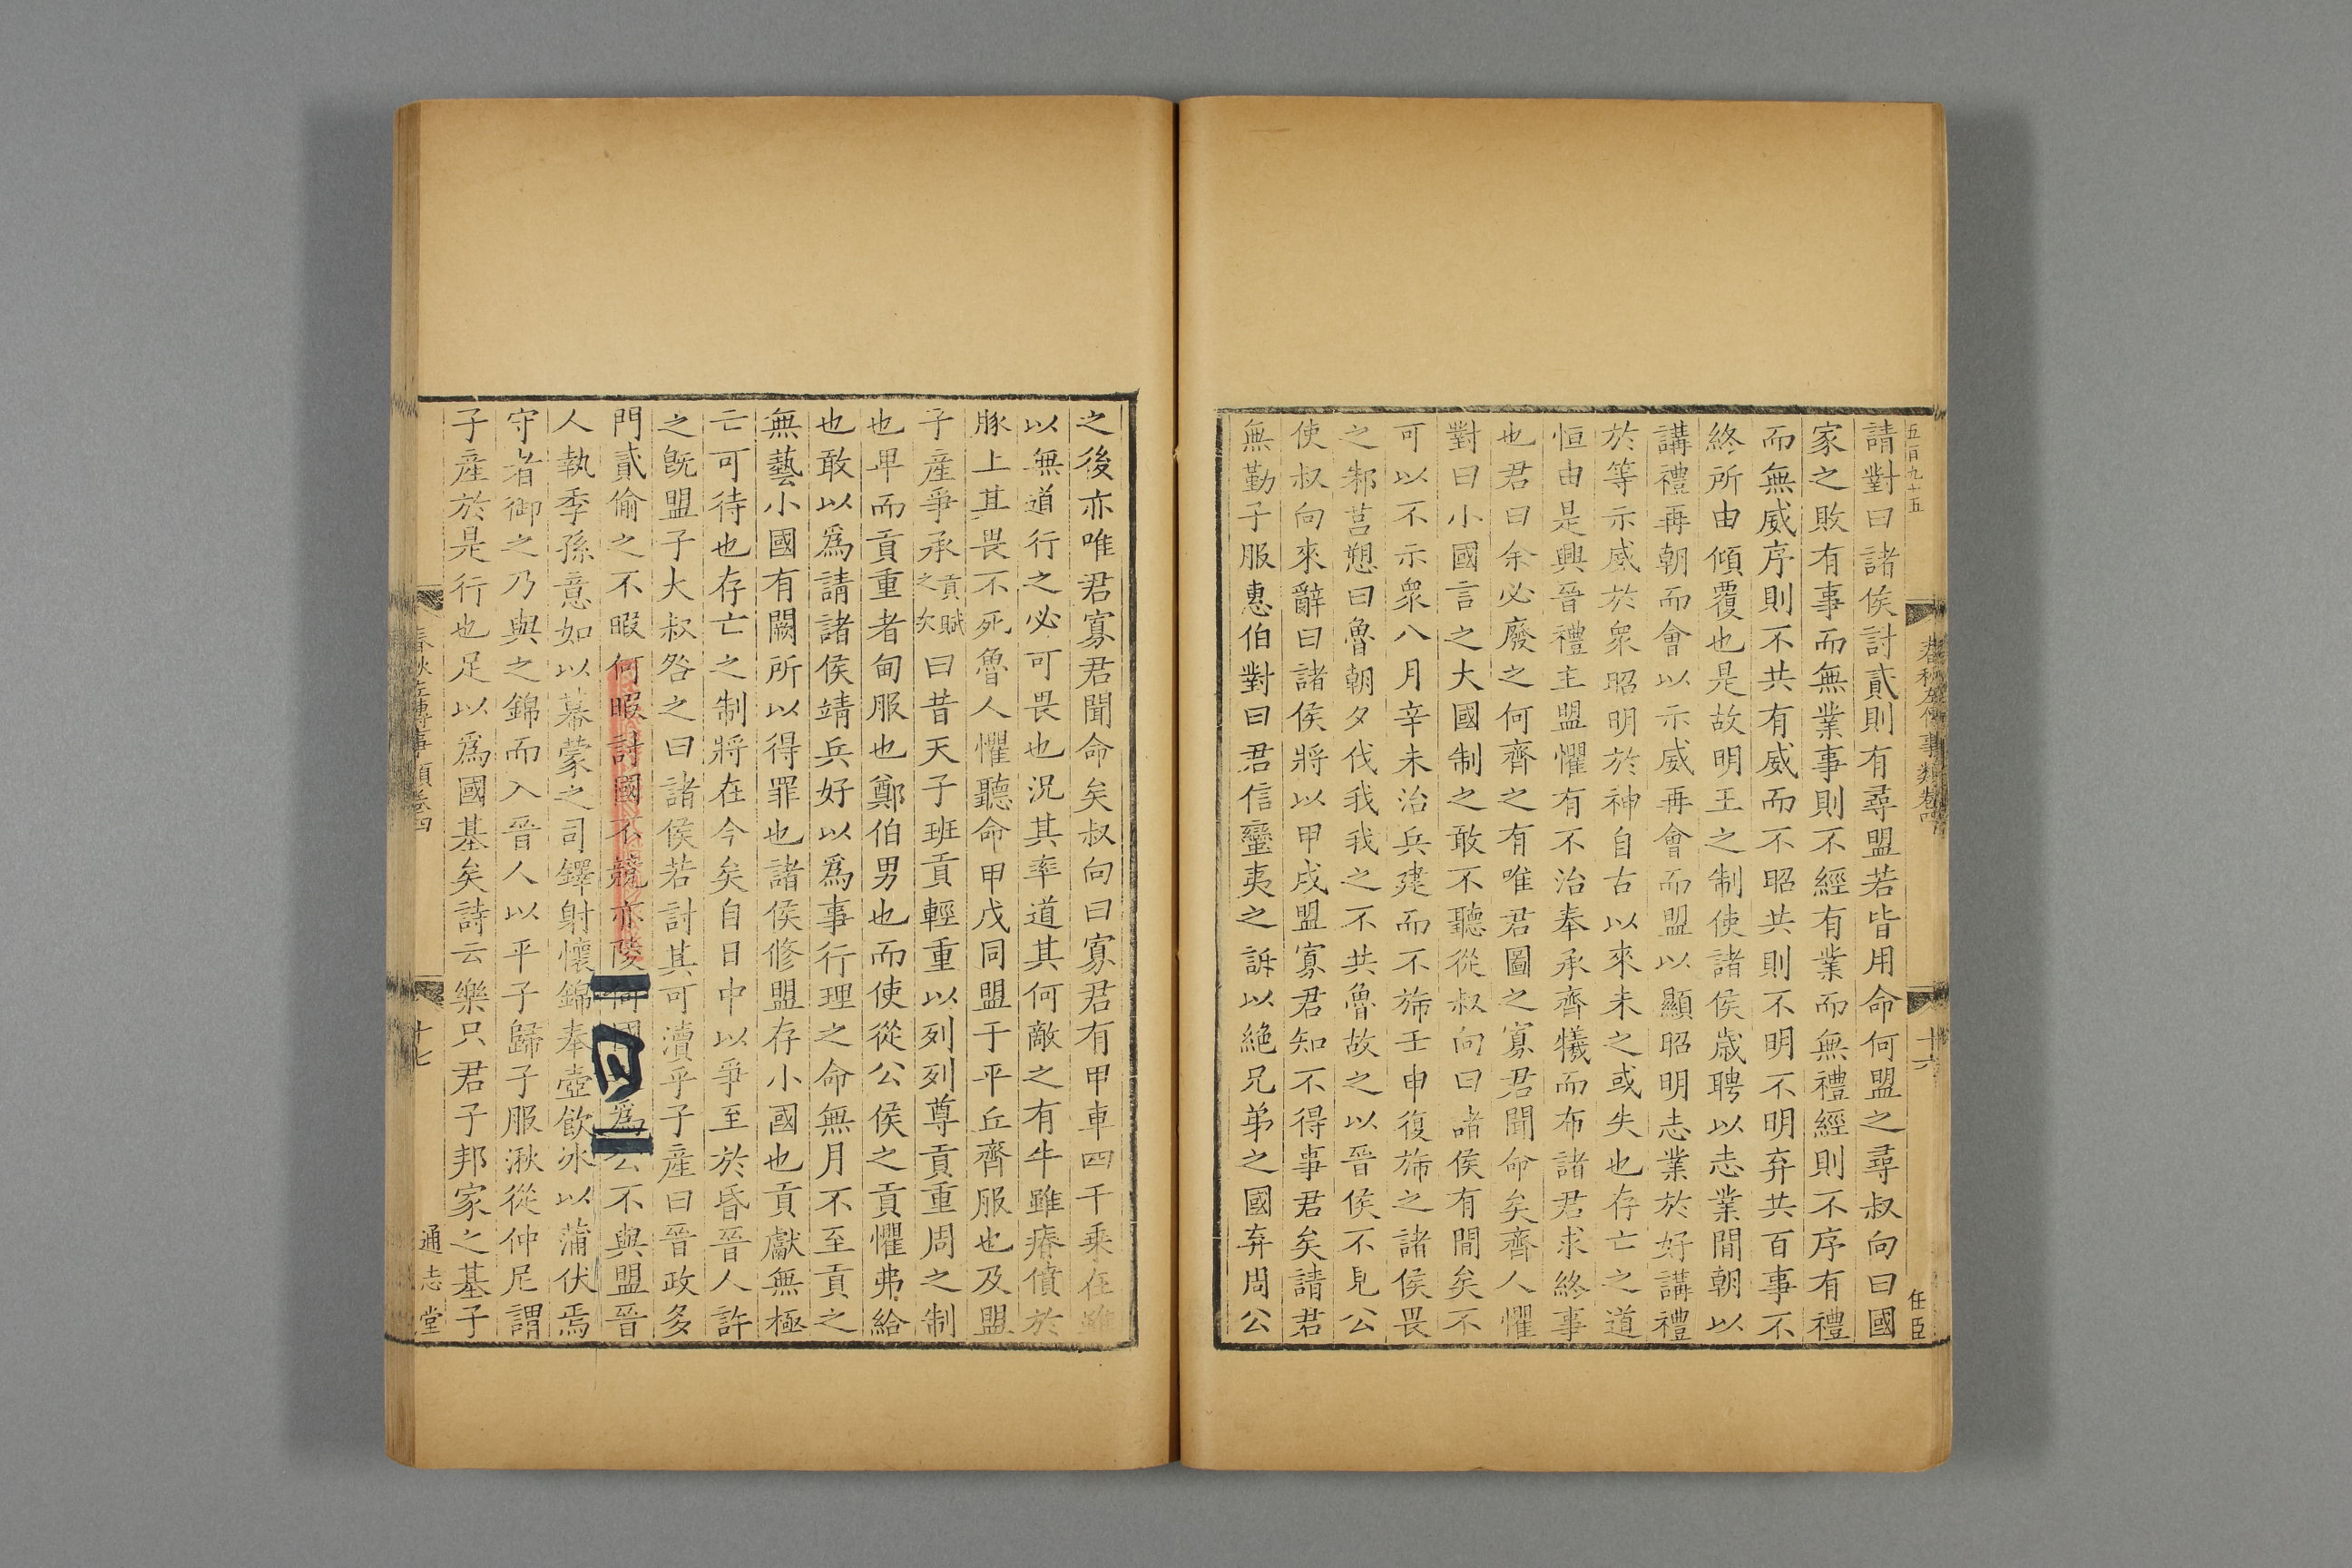 五百九十五
請對曰諸侯討貳則有尋盟若皆用命何盟之尋叔向曰國
家之敗有事而無業事則不經有業而無禮經則不序有禮
而無威序則不共有威而不昭共則不明不明弃共百事不
終所由傾覆也是故明王之制使諸侯歲聘以志業閒朝以
講禮再朝而會以示威再會而盟以顯昭明志業於好講禮
於等示威於衆昭明於神自古以來未之或失也存亡之道
恒由是興晉禮主盟懼有不治奉承齊犧而布諸君求終事
也君曰余必廢之何齊之有唯君圖之寡君聞命矣齊人懼
對曰小國言之大國制之敢不聽從叔向曰諸侯有閒矣不
可以不示衆八月辛未治兵建而不旆壬申復旆之諸侯畏
之邾莒愬曰魯朝夕伐我我之不共魯故之以晉侯不見公
使叔向來辭曰諸侯將以甲戌盟寡君知不得事君矣請君
無勤子服惠伯對曰君信蠻夷之訴以絕兄弟之國弃周公
春秋左傳事類卷四
十六
任臣
之後亦唯君寡君聞命矣叔向曰寡君有甲車四千乘在雖
以無道行之必可畏也況其率道其何敵之有牛雖瘠僨於
豚上其畏不死魯人懼聽命甲戌同盟于平丘齊服也及盟
子產爭承貢賦之次曰昔天子班貢輕重以列列尊貢重周之制
也卑而貢重者甸服也鄭伯男也而使從公侯之貢懼弗給
也敢以爲請諸侯靖兵好以爲事行理之命無月不至貢之
無藝小國有闕所以得罪也諸侯修盟存小國也貢獻無極
亡可待也存亡之制將在今矣自日中以爭至於昏晉人許
之旣盟子大叔咎之曰諸侯若討其可瀆乎子產曰晉政多
門貳偷之不暇何暇討國不競亦陵何國爲公不與盟晉
人執季孫意如以幕蒙之司鐸射懷錦奉壺飲冰以蒲伏焉
守者御之乃與之錦而入晉人以平子歸子服湫從仲尼謂
子產於是行也足以爲國基矣詩云樂只君子邦家之基子
春秋左傳事類卷四
十七
通志堂